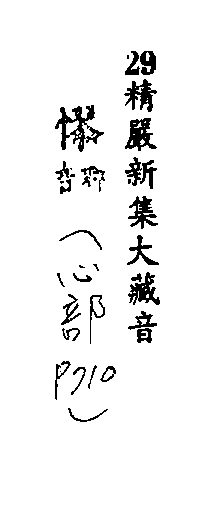 29精嚴新集大藏音
(心部
P710)